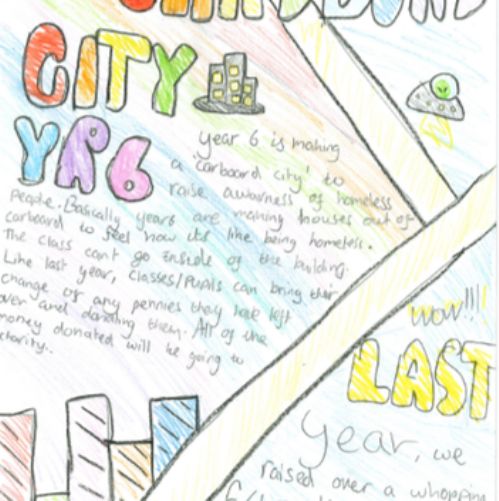 CITY
YR6
year 6 is making
a 'carboard city' to
raise awarness of homeless
people. Basically years are making houses out of
carboard to feel how its like being homeless.
The class can't go inside of the building.
Like last year, classes/pupils can bring their
change of any pennies they have left
over and donating them. All of the
money donated will be going to
charity..
wow!!!
LAST
year, we
raised over a whopping